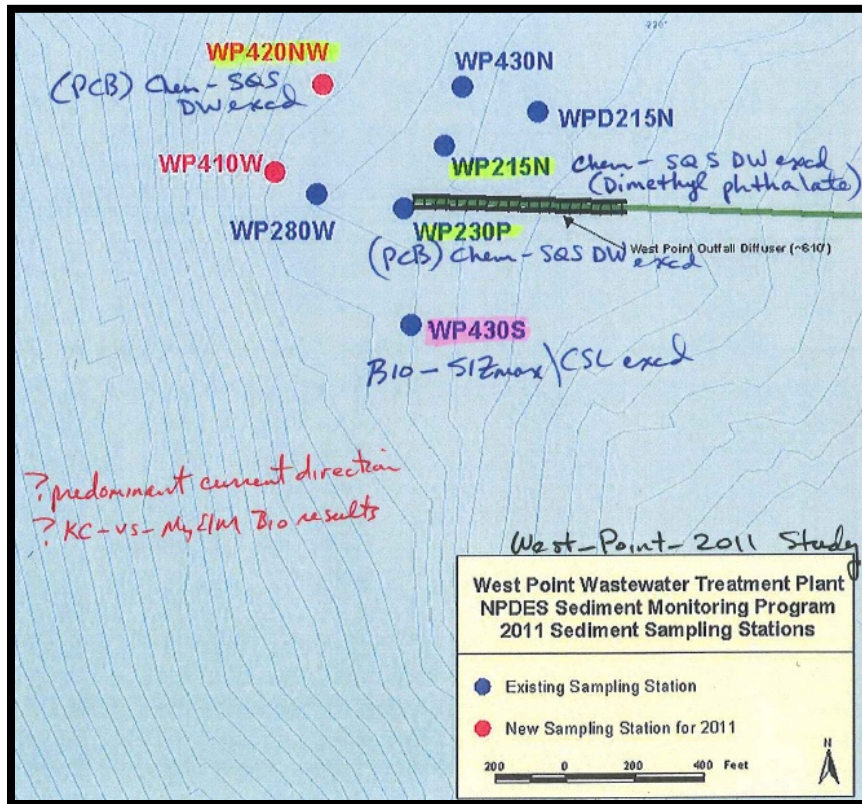 220'
WP420NW
(PCB) Chem - SQS
DW excd
WP430N
WPD215N
WP410W
WP215N
Chem - SQS DW excd
(Dimethyl phthalate)
WP280W
WP230P
West Point Outfall Diffuser (~610')
(PCB) Chem - SQS DW excd
WP430S
BIO - SIZmax\CSL excd
? predominant current direction
? KC - vs - MyEIM Bio results
West-Point-2011 Study
West Point Wastewater Treatment Plant
NPDES Sediment Monitoring Program
2011 Sediment Sampling Stations
Existing Sampling Station
New Sampling Station for 2011
200 0 200 400 Feet
N